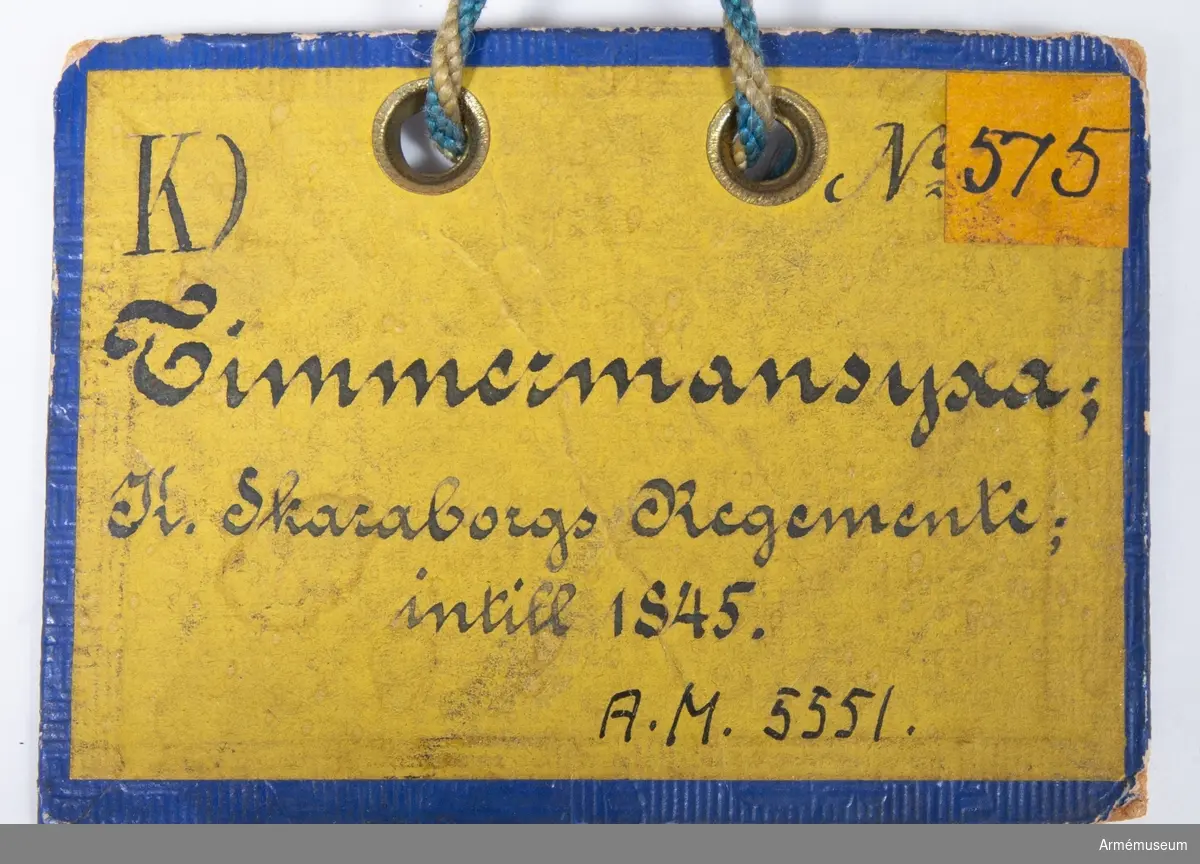 K) No 575
Timmermansyxa;
K. Skaraborgs Regemente;
intill 1845.
A.M. 5551.
Armémuseum